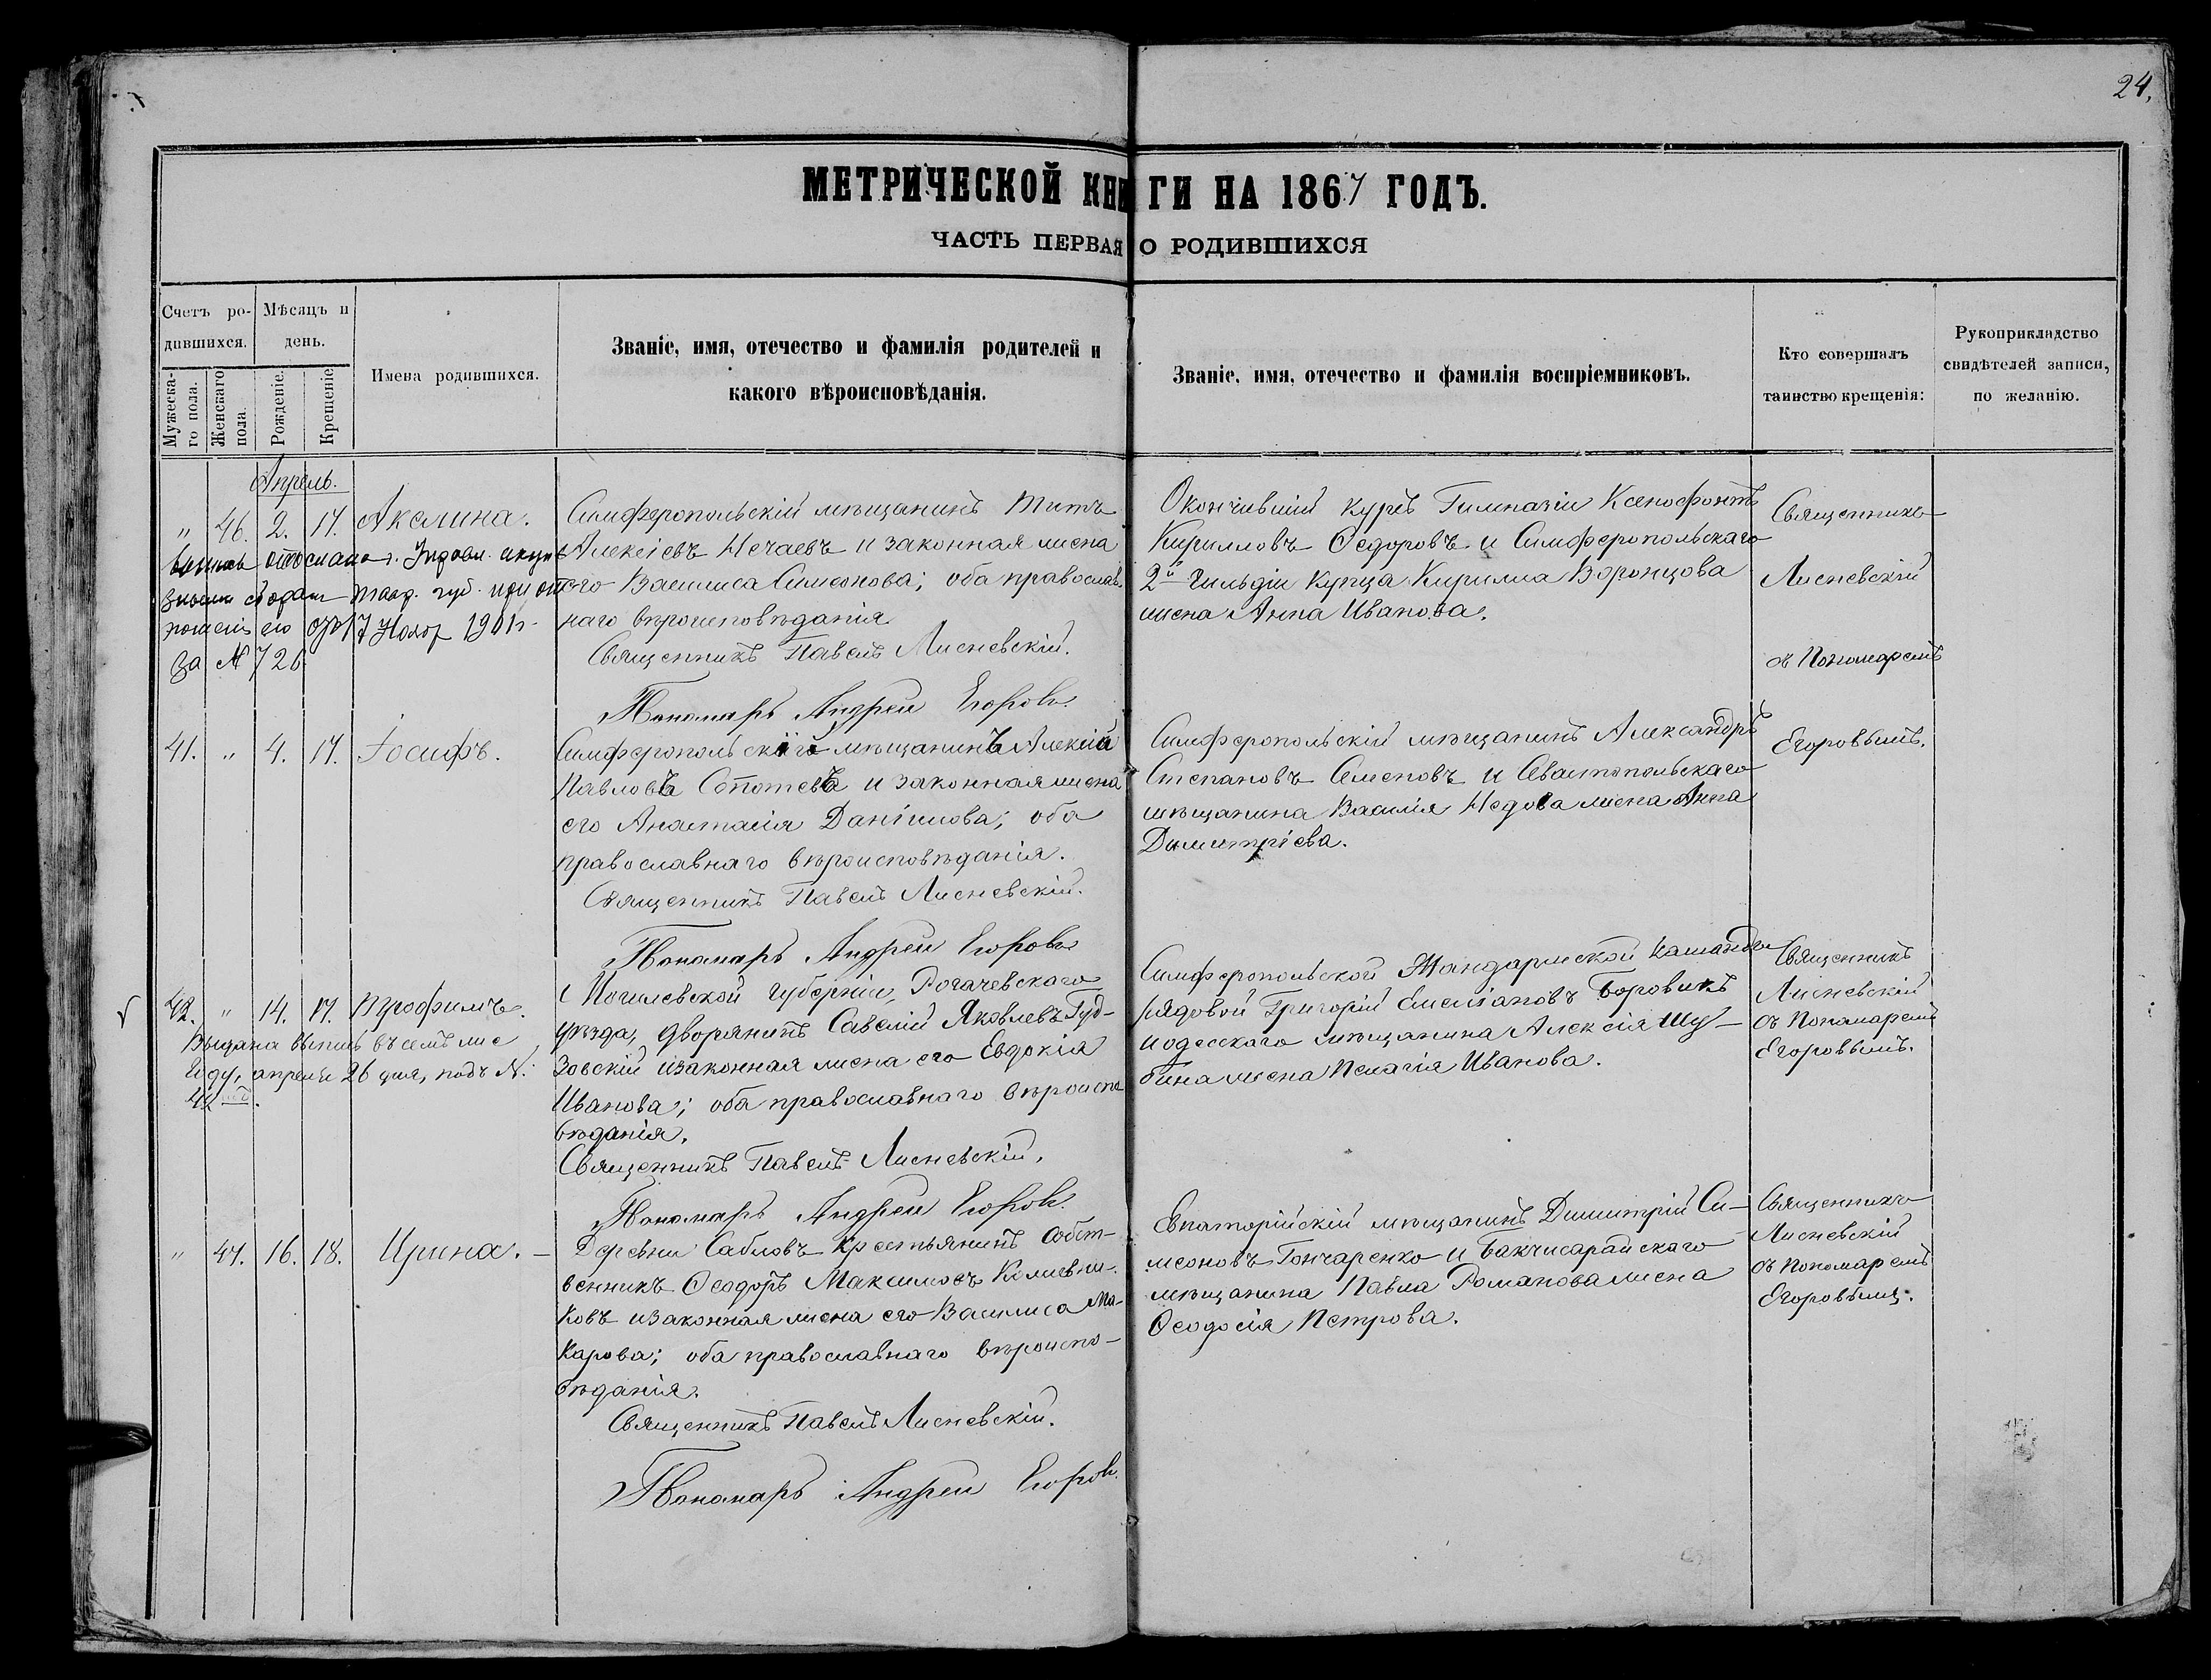 24.
МЕТРИЧЕСКОЙ КНИГИ НА 1867 ГОДЪ.
ЧАСТЬ ПЕРВАЯ О РОДИВШИХСЯ
Счетъ ро-
дившихся.
Мужеска-
го пола.
Женскаго
пола.
Мѣсяцъ и
день.
Рожденіе.
Крещеніе.
Имена родившихся.
Званіе, имя, отечество и фамилія родителей и
какого вѣроисповѣданія.
Званіе, имя, отечество и фамилія воспріемниковъ.
Кто совершалъ
таинство крещенія:
Рукоприкладство
свидѣтелей записи,
по желанію.
Апрель.
" 46. 2. 17. Акелина.
за № 726
Симферопольскій мѣщанинъ Титъ
Алексіевъ Нечаевъ и законная жена
его Василиса Симеонова; оба православ-
наго вѣроисповѣданія
Священникъ Павелъ Лисневскій.
Пономарь Андрей Егоровъ
Окончившій курсъ Гимназіи Ксенофонтъ
Кирилловъ Ѳедоровъ и Симферопольскаго
2й Гильдіи Купца Кирилла Воронцова
жена Анна Иванова.
Священникъ
Лисневскій
съ Пономаремъ
Егоровымъ.
41. " 4. 17. Іосифъ.
Симферопольскій мѣщанинъ Алексій
Павловъ и законная жена
его Анастасія Даніилова; оба
православнаго вѣроисповѣданія.
Священникъ Павелъ Лисневскій.
Пономарь Андрей Егоровъ
Симферопольскій мѣщанинъ Александръ
Степановъ Семеновъ и Севастопольскаго
мѣщанина Василія Недова жена Анна
Димитріева.
42. " 14. 17. Трофимъ.
Выдана выпись въ семъ же
году, апреля 26 дня, подъ №
42
Могилевской губерніи, Рогачевскаго
уѣзда, дворянинъ Савелій Яковлевъ Гуд-
зовскій и законная жена его Евдокія
Иванова; оба православнаго вѣроиспо
вѣданія.
Священникъ Павелъ Лисневскій.
Пономарь Андрей Егоровъ
Симферопольской Жандармской команды
рядовой Григорій Емеліановъ Боровикъ
и одесскаго мѣщанина Алексія Шу-
бина жена Пелагія Иванова.
Священникъ
Лисневскій
съ Пономаремъ
Егоровымъ.
" 47. 16. 18. Ирина.
Деревни Сабловъ крестьянинъ собст-
венникъ Ѳеодоръ Максимовъ
ковъ и законная жена его Василиса Ма-
карова; оба православнаго вѣроиспо-
вѣданія.
Священникъ Павелъ Лисневскій.
Пономарь Андрей Егоровъ
Евпаторійскій мѣщанинъ Димитрій Си-
меоновъ Гончаренко и Бакчисарайскаго
мѣщанина Павла Романова жена
Ѳеодосія Петрова.
Священникъ
Лисневскій
съ Пономаремъ
Егоровымъ.